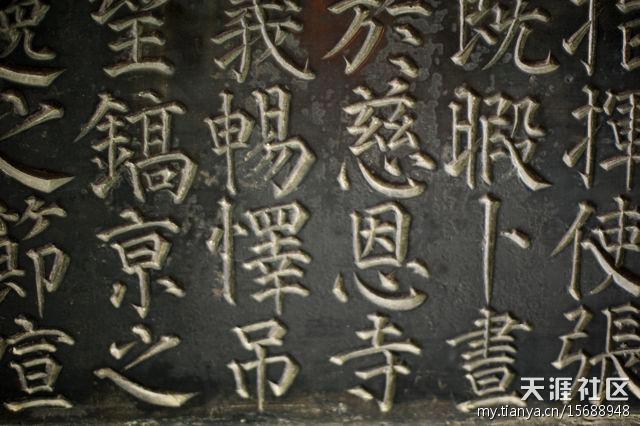 揮使張
既暇卜晝
於慈恩寺
義暢懌吊
鎬京之
之節宣
天涯社区
my.tianya.cn/15688948